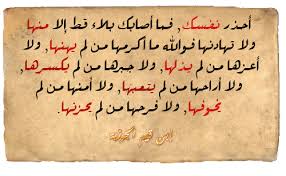 أحذر نفسك, فما أصابك بلاء قط إلا منها
ولا تهادنها فوالله ما أكرمها من لم يهنها, ولا
أعزها من لم يذلها, ولا جبرها من لم يكسرها,
ولا أراحها من لم يتعبها, ولا أمنها من لم
يخوفها, ولا فرحها من لم يحزنها.
ابن قيم الجوزية